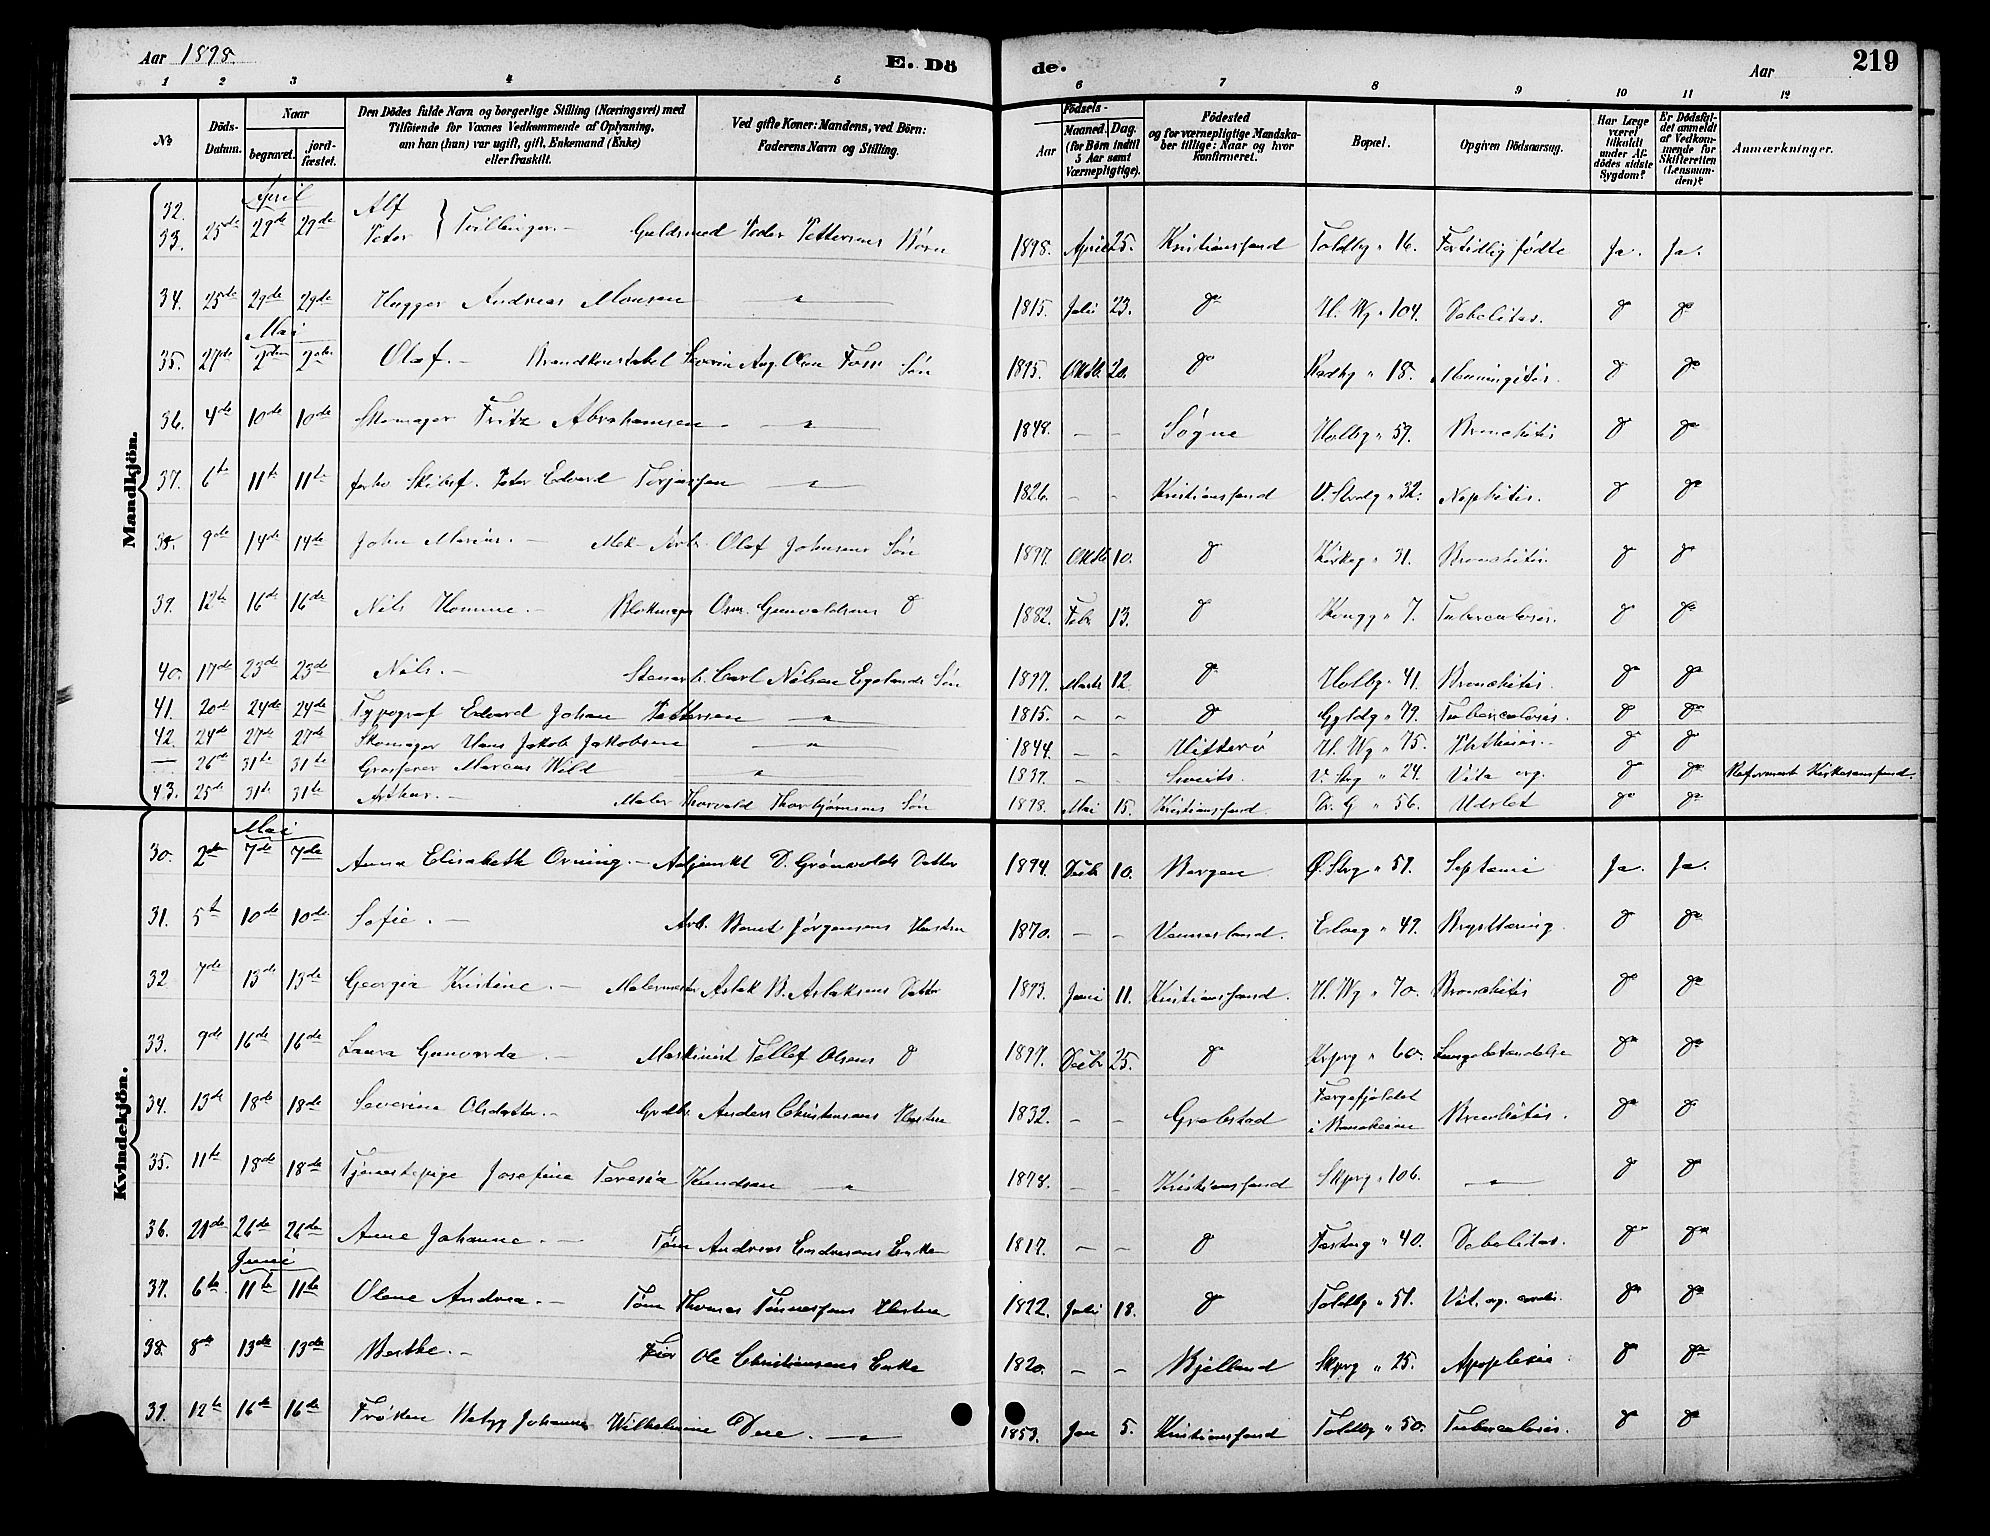 Aar 1898.
E. Dö de.
Aar
219
1 2 3 4 5 6 7 8 9 10 11 12
No
Döds-Datum.
Naar
begravet.
jordfæstet.
Den Dödes fulde Navn og borgerlige Stilling (Næringsvei) med Tilföiende for Voxnes Vedkommende af Oplysning, om han (hun) var ugift, gift, Enkemand (Enke) eller fraskilt.
Ved gifte Koner: Mandens, ved Börn: Faderens Navn og Stilling.
Födsels-
Aar
Maaned. Dag.
(for Börn indtil 5 Aar samt Værnepligtige).
Födested og for værnepligtige Mandskaber tillige: Naar og hvor konfirmeret.
Bopæl.
Opgiven Dödsaarsag.
Har Læge været tilkaldt under Afdödes sidste Sygdom?
Er Dödsfaldet anmeldt af Vedkommende for Skifteretten (Lensmanden)?
Anmærkninger.
Mandkjön.
April
32. Alf
33. 25de 29de 29de Peter } Tvillinger. — Guldsmed Peder Pettersens Børn 1898. April 25. Kristianssand Toldbg " 16. Fortidlig fødte Ja. Ja.
34. 25de 29de 29de Hugger Andreas Monsen " 1815. Juli 23. do H. Wg " 104. Debilitas. do do
Mai
35. 27de 2den 2den Olaf. — Brandkonstabel Severin Aug. Olsen Foss Søn 1895. Oktb. 20. do Rødbg " 18. Meningitis. do do
36. 4de 10de 10de Skomager Fritz Abrahamsen. " 1848. — — Søgne Holbg " 59. Bronchitis do do
37. 6te 11te 11te forhv. Skibsf. Peter Edvard Terjussen " 1826. — — Kristianssand V. Strdg " 32. Nephitis. do do
38. 9de 14de 14de John Marius. — Mek. Arb. Olaf Johnsens Søn 1897. Oktb 10. do Kirkeg " 31. Bronchitis. do do
39. 12te 16de 16de Nils Homme. — Blokmager Osm. Gunvaldsens do 1882. Febr 13. do Kongg " 7. Tuberculosis. do do
40. 17de 23de 23de Nils. — Stenarb. Carl Nilsen Egelands Søn 1897. Marts 12. do Holbg " 41. Bronchitis. do do
41. 20de 24de 24de Typograf Edvard Johan Pettersen " 1815. — — do Gyldg " 79. Tuberculosis. do do
42. 24de 27de 27de Skomager Hans Jakob Jakobsen " 1844. — — Hitterø H. Wg " 75. Phthisis. — do do
— 26de 31te 31te Grosserer Marcus Wild " 1837. — — Sweits. V. Strg " 24. Vita org. do do Reformert Kirkesamfund.
43. 25de 31te 31te Arthur. — Maler Thorvald Thorbjørnsens Søn 1898. Mai 15. Kristianssand. Dr. G " 56. Udslet do do
Kvindekjön.
Mai
30. 2den 7de 7de Anna Elisabeth Orning. — Adjunkt D. Grønvolds Datter 1894. Decbr 10. Bergen Ø. Strg " 59. Septæmi Ja. Ja.
31. 5te 10de 10de Sofie. — Arb. Bernt Jørgensens Hustru 1870. — — Vennesland. Elveg " 49. Brysttæring. do do
32. 7de 13de 13de Georgia Kristine. — Malermester Aslak B. Aslaksens Datter 1893. Juni 11. Kristianssand. H. Wg " 70. Bronchitis do do
33. 9de 16de 16de Laura Gunvarda. — Maskinist Tellef Olsens do 1897. Decbr 25. do " 60. Lungebetændelse do do
34. 13de 18de 18de Severine Olsdatter. — Grdbr. Anders Christensens Hustru 1832. — — Grebstad Bronchitis. do do
35. 11te 18de 18de Tjenestepige Josefine Teresia Knudsen " 1878. — — Kristianssand Skprg " 106. " do do
36. 21de 26de 26de Anne Johanne. — Tøm Andreas Endresens Enke 1817. — — do Festng " 40. Debilitas. do do
Juni
37. 6te 11te 11te Olene Andrea. — Tøm Thomas Tønnessens Hustru 1822. Juli 18. do Toldbg " 59. Vit. org. cordis. do do
38. 8de 13de 13de Berthe. — Ole Christiansens Enke 1820. — — Bjelland Skprg " 25. Apoplexia. do do
39. 12te 16de 16de Frøken Betzy Johanne Wilhelmine Due. — " 1853. Jan 5. Kristianssand Toldbg " 50. Tuberculosis. do do